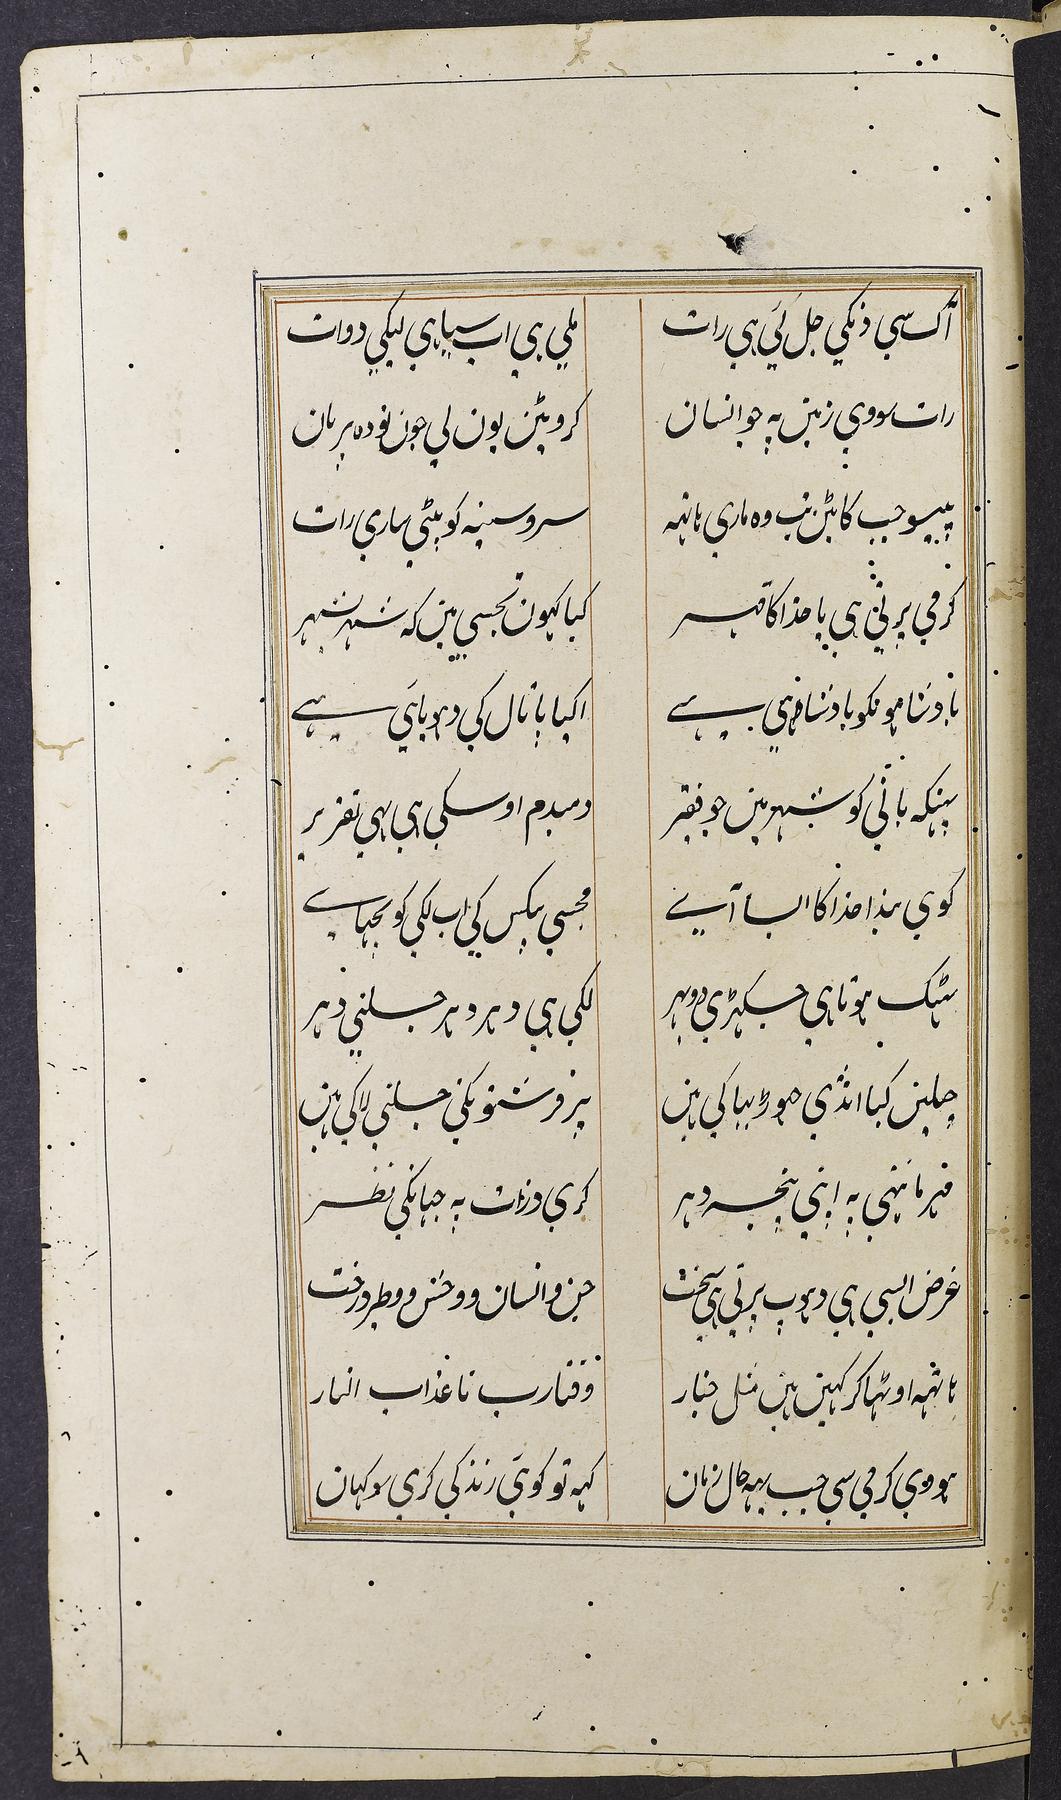 آک سی دنکی جل کئی ہی رات ملی ہی اب سیاہی لیکی دوات
رات سووی زمین پہ جو انسان کروٹین یون لی جون تودہ پر بان
پیسو جب کاٹین تب وہ ماری ہاتہہ سر و سینہ کو پیٹی ساری رات
کرمی پرتی ہی یا خدا کا قہر کیا کہون تجسی مین کہ شہر شہر
بادشاہونکو بادشاہی ہے اکیا پاتال کی دہوپائی ہے
پہنکہ بانی کو شہر مین جو فقیر دمبدم اوسکی ہی یہی تقریر
کوی بندا خدا کا ایسا آیے مجسی بیکس کی اب لکی کو بجہایے
ٹہیک ہوتا ہی جسکہڑی دوپہر لکی ہی دہر دہر جلنی دہر
چلین کیا انڈی چوڑ بہاکی ہین پر فرشتونکی جلنی لاکی ہین
قہرمانہی پہ اپنی پنجہ دہر کری ذرات پہ جہانکی نظر
غرض ایسی ہی دہوپ پرتی ہی سخت جن و انسان و وحش و طیر و درخت
ہاتہہ اوٹہا کر کہین ہین مثل چنار وقنا ربنا عذاب النار
ہووی کرمی سی جب یہہ حال زمان کہہ تو کوئی زندکی کری سو کہان